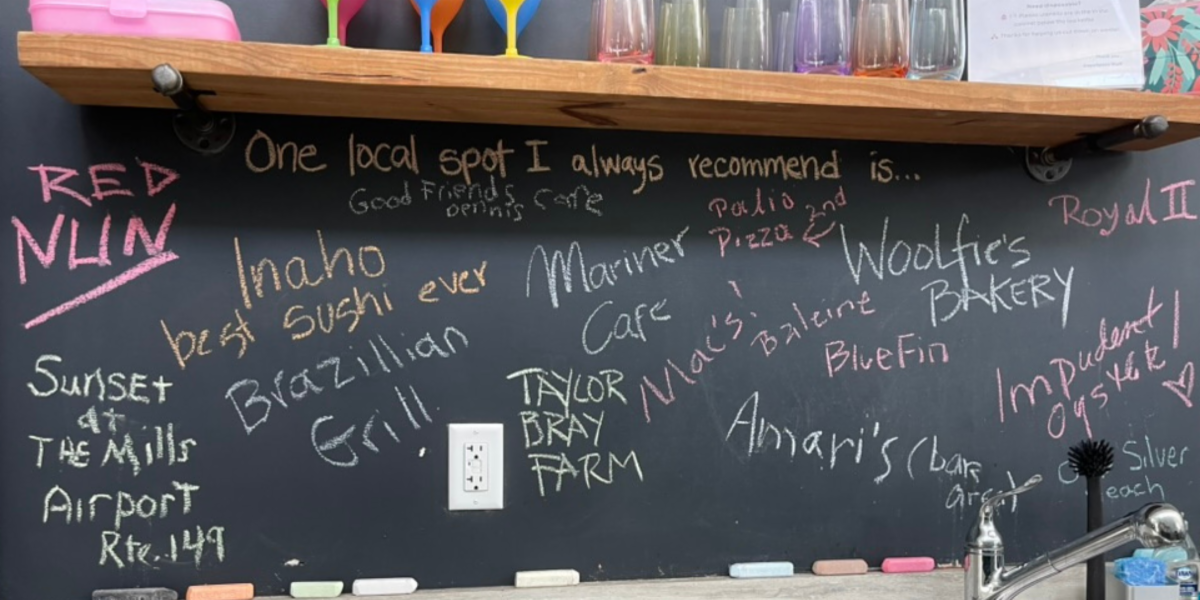 One local spot I always recommend is...
RED
NUN
Good Friends
Dennis Cafe
Inaho
best sushi ever
Mariner
Cafe
Palio 2nd
Pizza
Woolfie's
BAKERY
Royal II
Brazillian
Grill
TAYLOR
BRAY
FARM
Mac's
Baleine
BlueFin
Impudent
oyster
Sunset
at
THE Mills
Airport
Rte. 149
Amari's (bar
area)
Silver